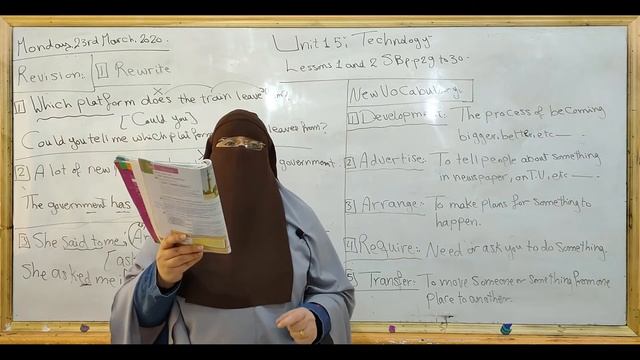 Monday, 23rd March, 2020.
Unit 15: Technology
Lessons 1 and 2 SB pp 29 to 30.
Revision:
1 Rewrite
1 Which platform does the train leave
[Could you]
Could you tell me which platform leaves from?
2 A lot of new government.
The government has
3 She said to me,
She asked me
New Vocabulary:
1 Development: The process of becoming
bigger, better, etc
2 Advertise: To tell people about something
in newspaper, on T.V, etc
3 Arrange: To make plans for something to
happen.
4 Require: Need or ask you to do something.
5 Transfer: To move someone or something from one
place to another.